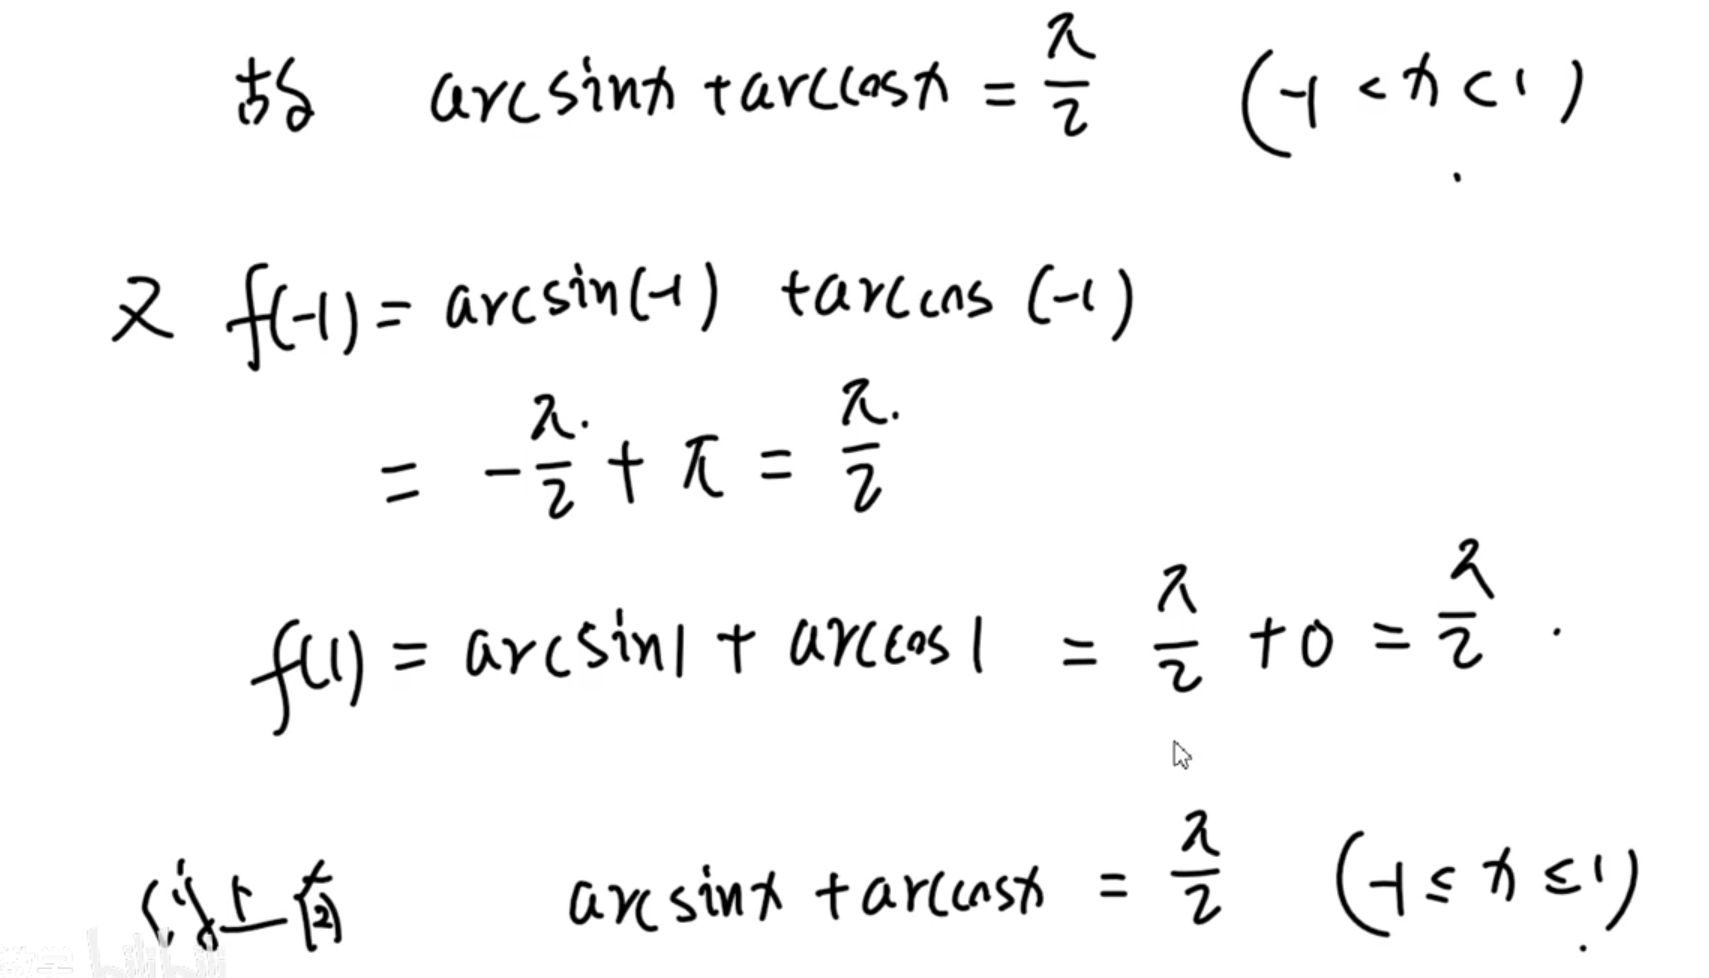 故 arcsinx + arccosx = π/2 (-1 < x < 1)
又 f(-1) = arcsin(-1) + arccos(-1)
= -π/2 + π = π/2
f(1) = arcsin1 + arccos1 = π/2 + 0 = π/2.
综上所 arcsinx + arccosx = π/2 (-1 ≤ x ≤ 1).
bilibili